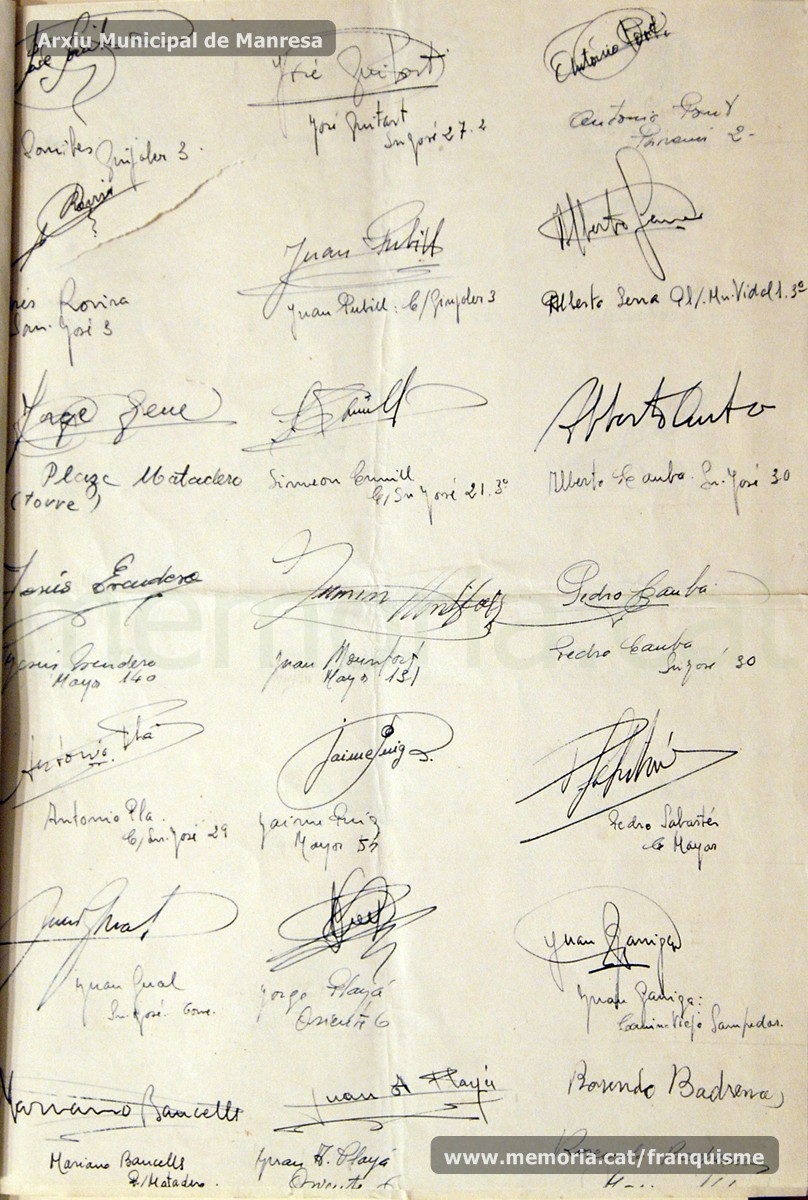 Arxiu Municipal de Manresa
José Guitart
José Guitart
Sn José 27. 2
Antonio Pont
Antonio Pont
2-
3.
Rovira
Rovira
San José 3
Juan Pubill
Juan Pubill: C/ Grujoles 3
Alberto Serra
Alberto Serra Pl/. Mn. Vidal 1. 3º
Jorge Gene
Plaza Matadero
(torre)
Simeon Cunill
C/ Sn José 21. 3º
Alberto
Alberto Canba. Sn. José 30
Jesús Escudero
Jesús Escudero
Mayor 140
Juan Monfort
Juan Mounfort
Mayor 131
Pedro Canba
Pedro Canba
Sn José 30
Antonio Pla
Antonio Pla.
C/ Sn. José 29
Jaime Puig
Jaime Puig
Mayor 51
Pedro Sabartés
C Mayor
Juan Gual
Juan Gual
Sn. José. Torre.
Jorge Playá
Oriente 6
Juan Garriga
Juan Garriga:
Camino Viejo Sampedor.
Mariano Bancells
Mariano Bancells
P/ Matadero.
Juan A Playá
Juan A. Playá
Oriente 6
Rosendo Badrenas
memoria.cat
www.memoria.cat/franquisme